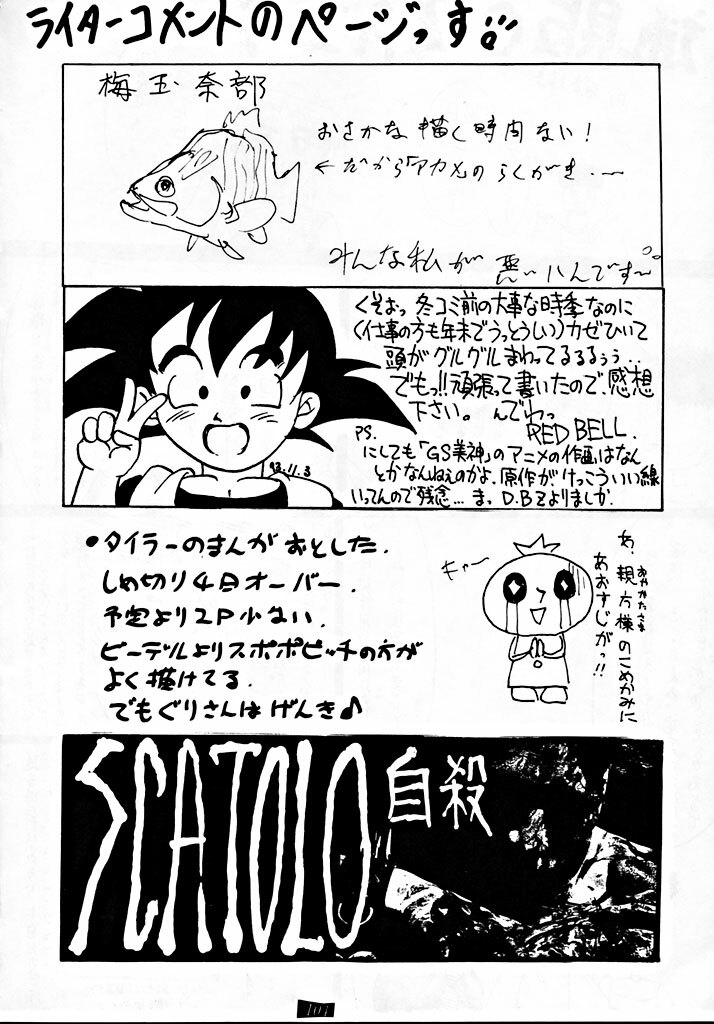 ライターコメントのページっす
梅玉奈部
おさかな描く時間ない!
←だから「アカメ」のらくがき・〜
みんな私が悪いんです〜
くそぉっ 冬コミ前の大事な時季なのに
(仕事の方も年末でうっとうしい)カゼひいて
頭がグルグルまわってるるるぅぅ..
でもっ!!頑張って書いたので、感想
下さい。んでわっ
RED BELL.
PS.
にしても「GS美神」のアニメの作画はなん
とかなんねぇのかよ.原作がけっこういい線
いってんので残念...まっ D.B.Zよりましか.
93.11.3
•タイラーのまんがおとした.
しめ切り4日オーバー.
予定より2P少ない.
ビーデルよりスポポビッチの方が
よく描けてる.
でもぐりさんはげんき♪
キャー
あ、親方様のこめかみに
おやかたさま
あおすじがっ!!
SCATOLO
自殺
101